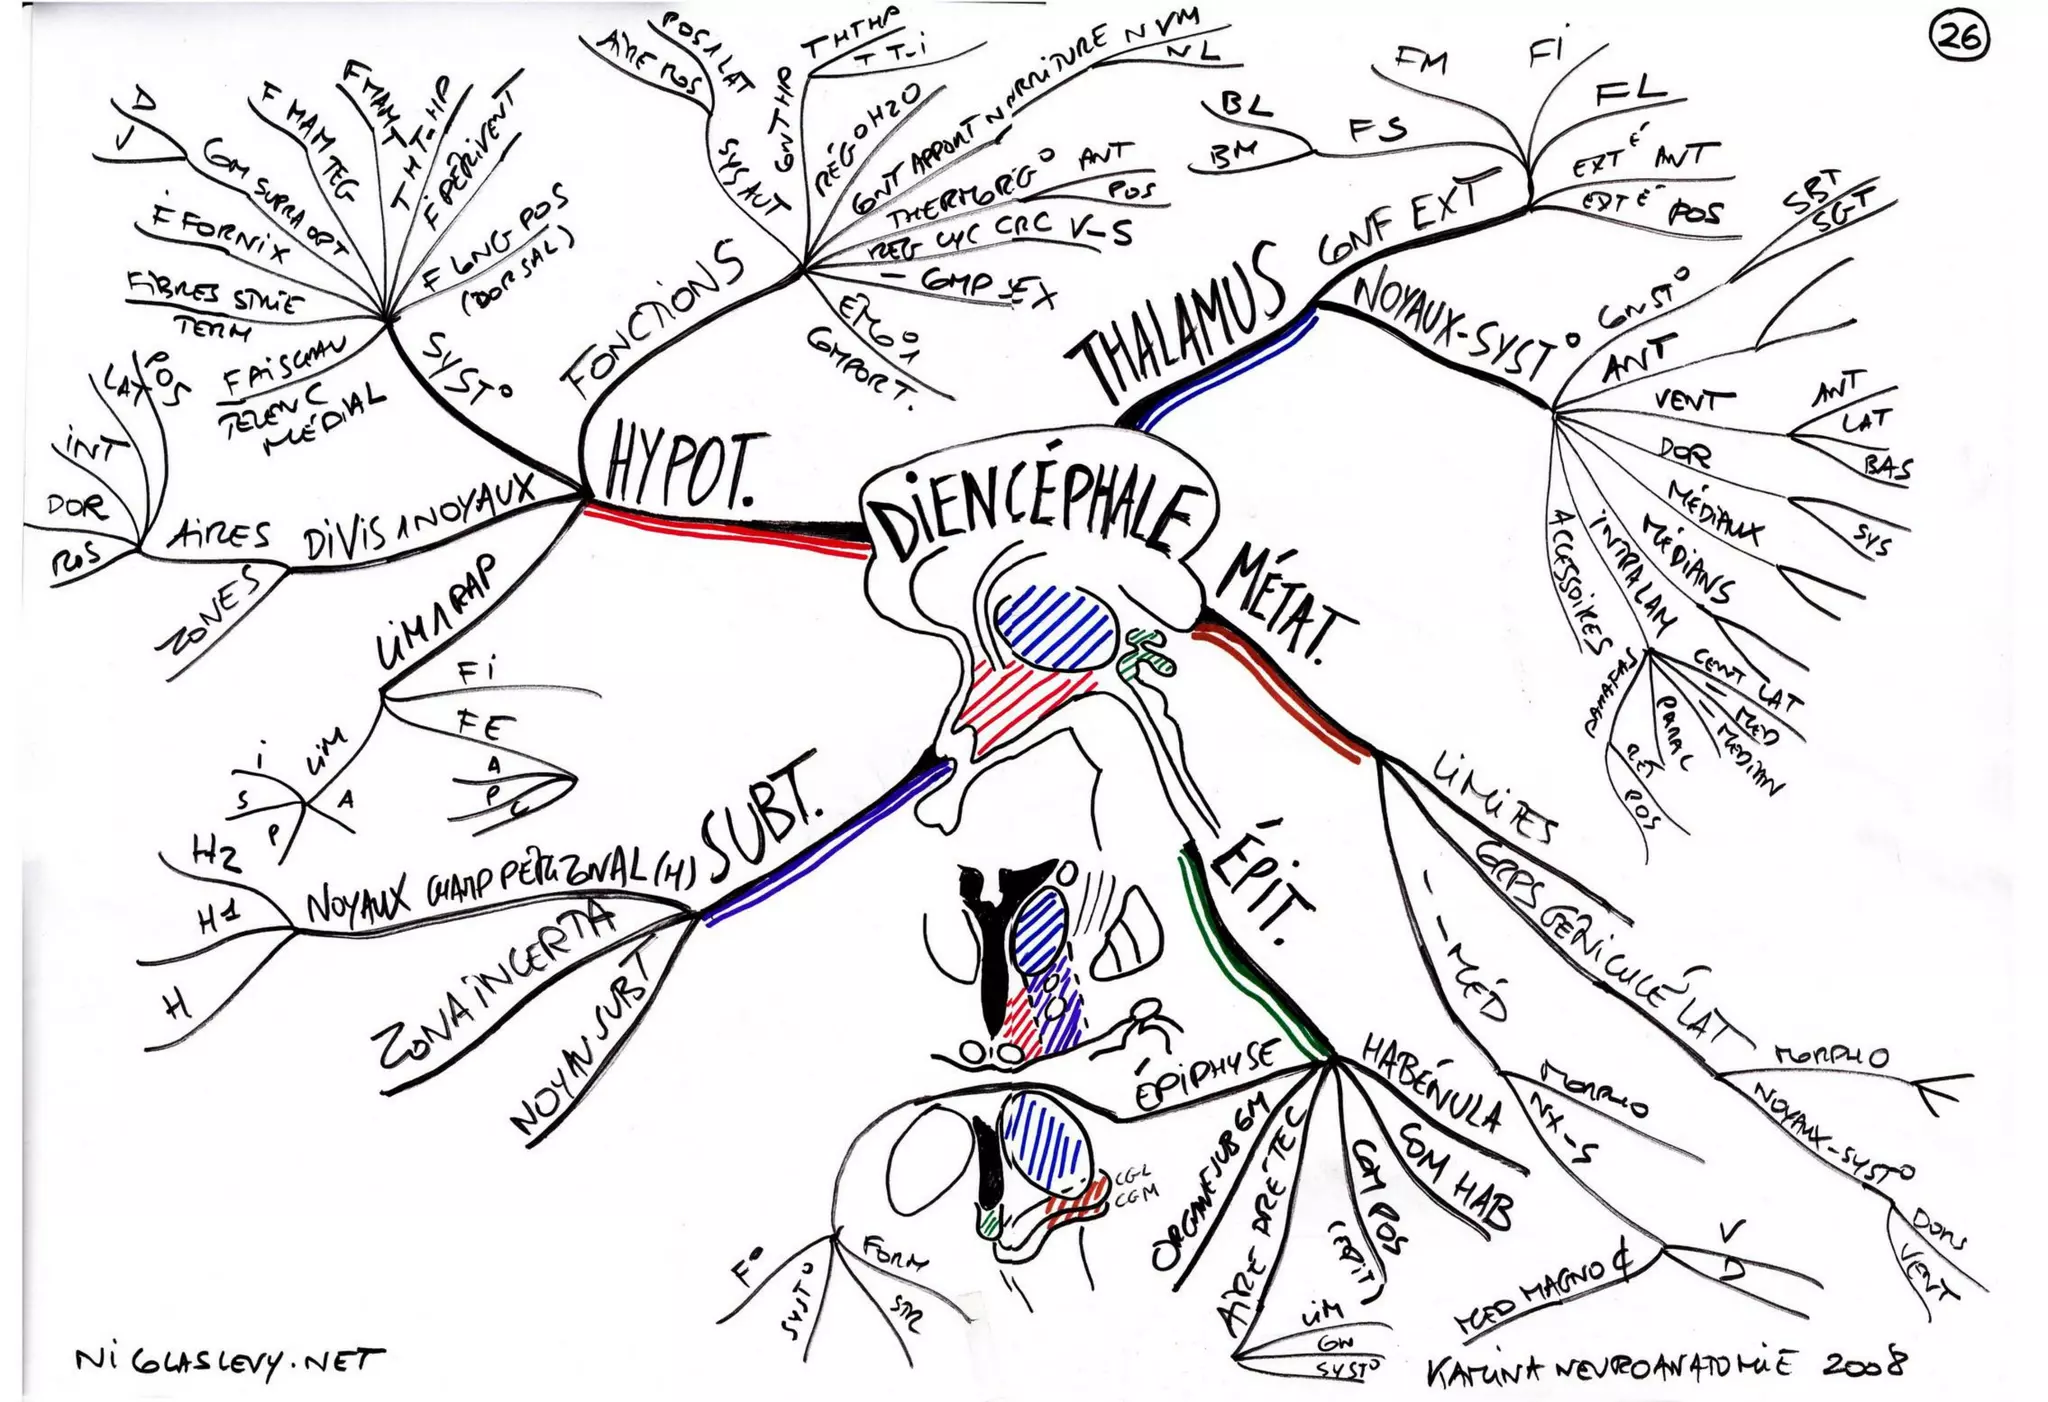 26
DIENCÉPHALE
THALAMUS
CONF EXT
FS
BL
BM
FM
FI
FL
EXTÉ ANT
EXTÉ POS
NOYAUX-SYST°
CONST°
SBT
SGT
ANT
VENT
ANT
LAT
BAS
DOR
SYS
MÉDIAUX
MÉDIANS
INTRALAM
CENT LAT
— MED
— MEDIAN
PARAC
PARAFAS
RÉT
POS
ACCESSOIRES
MÉTAT.
LIMITES
GRPS GÉNICULÉ LAT
MORPHO
NOYAUX-SYST°
DORS
VENT
— — MÉD
MORPHO
NX-S
V
D
MED MAGNO ₵
ÉPIT.
HABÉNULA
COM HAB
COM POS
(ÉPIT)
AIRE PRÉTEC
LIM
CON
SYST°
ORGANE SUB COM
ÉPIPHYSE
FORM
STR
SYST°
F°
CGL
CGM
SUBT.
NOYAUX CHAMP PÉRIZONAL (H)
H2
H1
H
ZONA INCERTA
NOYAU SUBT
HYPOT.
FONCTIONS
SYS AUT
AIRE ROS
POS 1 LAT
CONT HP
THTHP
TT-I
RÉG° H2O
CONT APPORT NRRITURE
NVM
NL
THERMORÉG°
ANT
POS
REG CYC CRC V-S
— COMP-EX
EMO° 1
COMPORT.
SYST°
F LONG POS
(DORSAL)
F PÉRIVENT
THT-HP
F MAM T
F MAM TEG
COM SUPRA OPT
D
V
F FORNIX
FIBRES STRIE
TERM
FAISCEAU
TELENC
MÉDIAL
DIVIS 1 NOYAUX
AIRES
LAT
POS
INT
DOR
ROS
ZONES
LIM 1 RAP
FI
FE
A
P
L
LIM
I
S
P
A
NICOLASLEVY.NET
KAMINA NEUROANATOMIE 2008